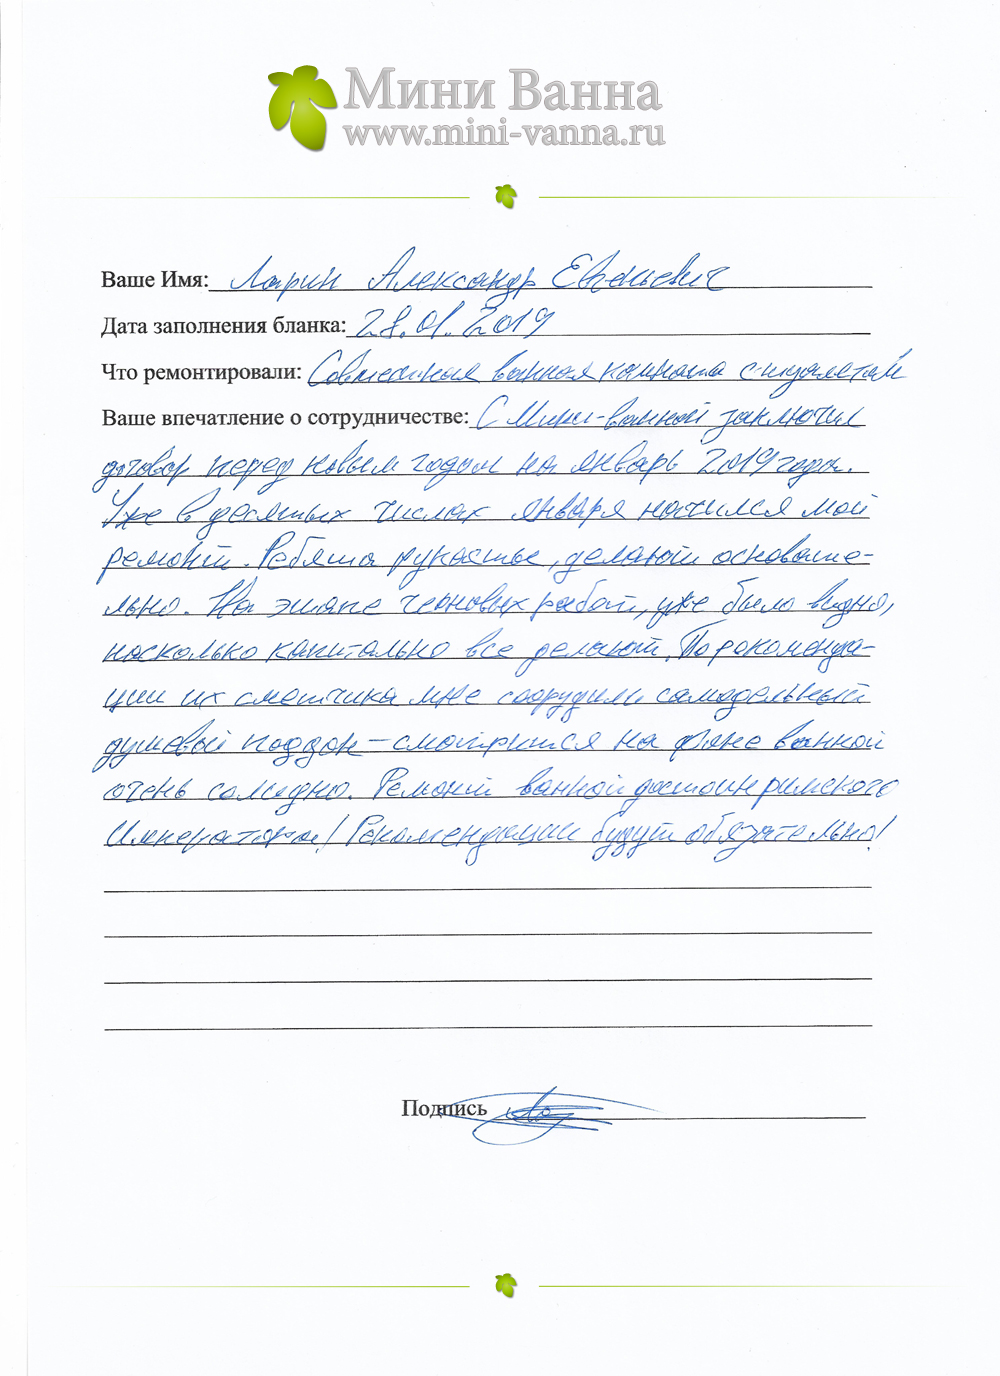 Мини Ванна
www.mini-vanna.ru
Ваше Имя: Ларин Александр Евгеньевич
Дата заполнения бланка: 28.01.2019
Что ремонтировали: Совместная ванная комната с туалетом
Ваше впечатление о сотрудничестве: С Мини-ванной заключил
договор перед новым годом на январь 2019 года.
Уже в десятых числах января начился мой
ремонт. Ребята рукастые, делают основате-
льно. На этапе черновых работ, уже было видно,
насколько капитально все делают. По рекоменда-
ции их сметчика мне соорудили самодельный
душевый поддон - смотрится на фоне ванной
очень солидно. Ремонт ванной достоин римского
Императора! Рекомендации будут обязательно!
Подпись